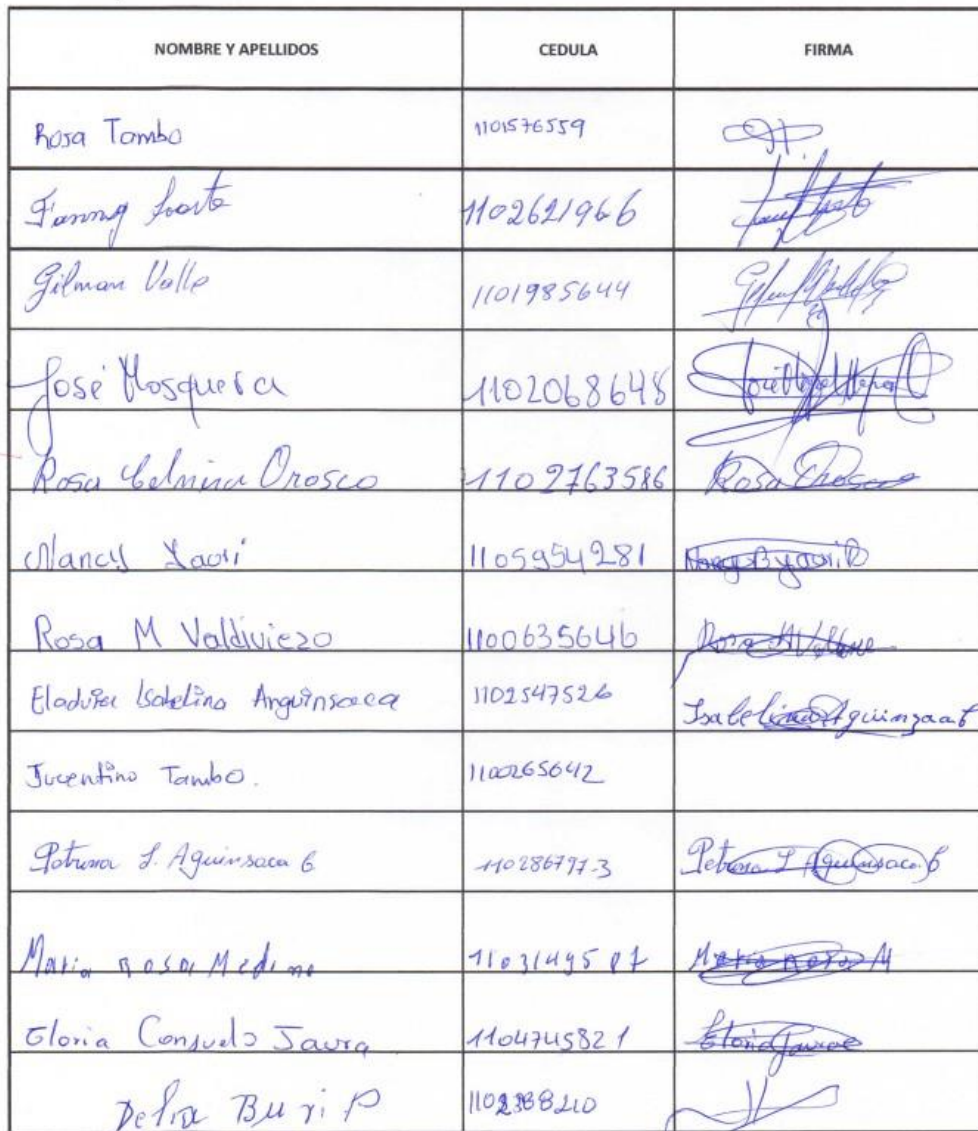 NOMBRE Y APELLIDOS CEDULA FIRMA
Rosa Tambo 1101576559
Fanny 1102621966
Gilman Valle 1101985644
José Mosquera 1102068648
Rosa Celmira Orosco 1102763586 Rosa Orosco
Nancy Yaori 1105954281
Rosa M Valdiviezo 1100635646 Rosa M
Isabelina Anguinsaca 1102547526 Isabelina
Jucentino Tambo. 1100265642
Petrona L. Aguinsaca G Petrona L Aguinsaca G
Maria Rosa Medina Maria Rosa M
Gloria Consuelo Jaura 1104745821 Gloria
Delia Buri P